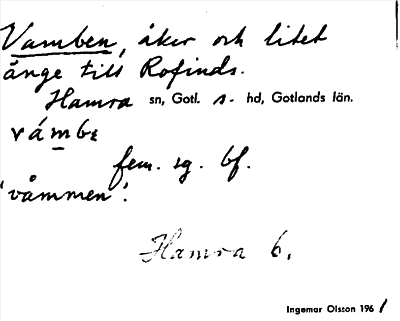 Vamben, åker och litet
änge till Rofinds.
Hamra sn, Gotl. s. hd, Gotlands län.
vámbɛ
fem. sg. bf.
'våmmen'.
Hamra 6.
Ingemar Olsson 1961